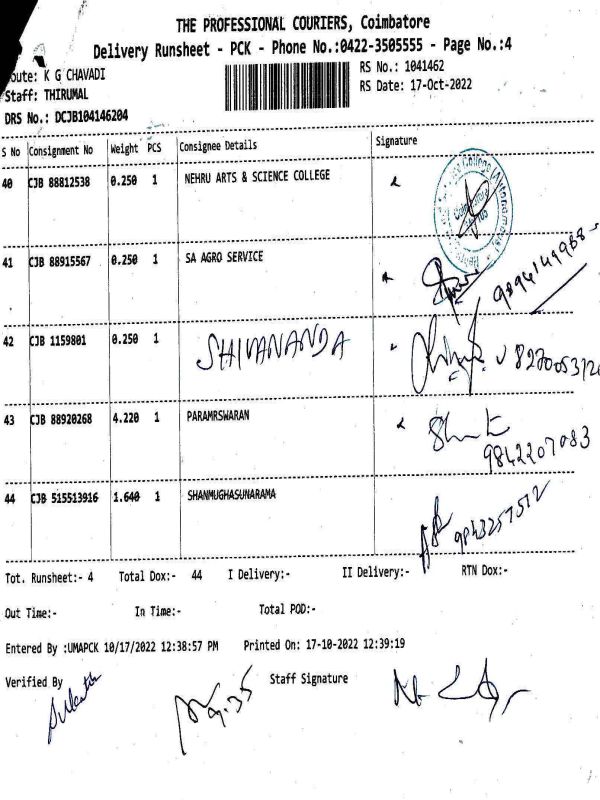 THE PROFESSIONAL COURIERS, Coimbatore
Delivery Runsheet - PCK - Phone No.:0422-3505555 - Page No.:4
oute: K G CHAVADI
RS No.: 1041462
Staff: THIRUMAL
RS Date: 17-Oct-2022
DRS No.: DCJB104146204
S No Consignment No Weight PCS Consignee Details Signature
40 CJB 88812538 0.250 1 NEHRU ARTS & SCIENCE COLLEGE
41 CJB 88915567 0.250 1 SA AGRO SERVICE
9894149988
42 CJB 1159801 0.250 1 SHIVANANDA
43 CJB 88920268 4.220 1 PARAMRSWARAN
9842207083
44 CJB 515513916 1.640 1 SHANMUGHASUNARAMA
9843257512
Tot. Runsheet:- 4 Total Dox:- 44 I Delivery:- II Delivery:- RTN Dox:-
Out Time:- In Time:- Total POD:-
Entered By :UMAPCK 10/17/2022 12:38:57 PM Printed On: 17-10-2022 12:39:19
Verified By Staff Signature
9.35